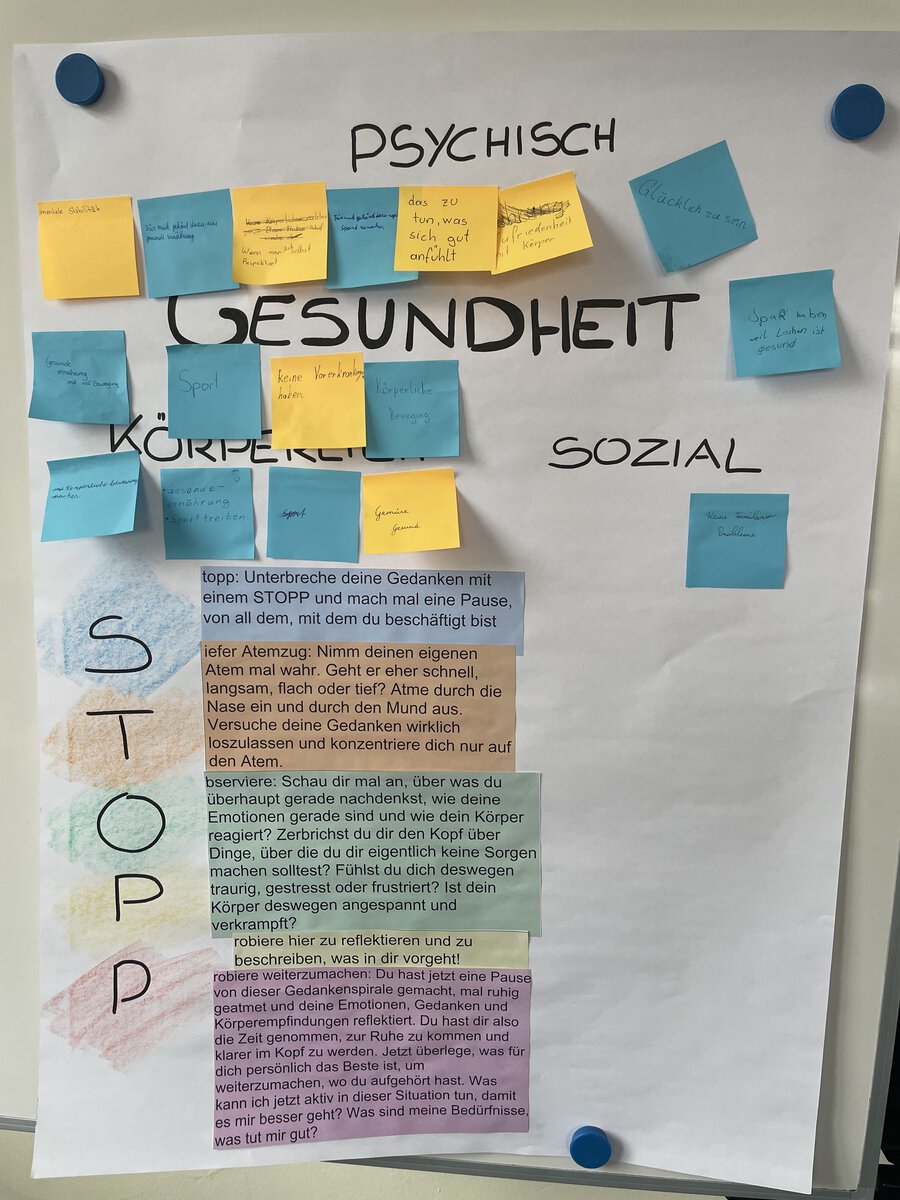 PSYCHISCH
mentale Stabilität
Für mich gehört dazu eine
gesunde ernährung
Wenn man sich selbst
Respektiert
Für mich gehört dazu
Sport
das zu
tun, was
sich gut
anfühlt
ufriedenheit
mit Körper
Glücklich zu sein
GESUNDHEIT
Spaß haben
weil Lachen ist
gesund
Gesunde
ernährung
und viel Bewegung
Sport
keine Vorerkrankung
haben
Körperliche
Bewegung
KÖRPERLICH
SOZIAL
Körperliche bewegung
machen
• Gesunde-
ernährung
• Sport treiben
Sport
Gemüse
Gesund
Keine Familiären
Probleme
S
topp: Unterbreche deine Gedanken mit
einem STOPP und mach mal eine Pause,
von all dem, mit dem du beschäftigt bist
T
iefer Atemzug: Nimm deinen eigenen
Atem mal wahr. Geht er eher schnell,
langsam, flach oder tief? Atme durch die
Nase ein und durch den Mund aus.
Versuche deine Gedanken wirklich
loszulassen und konzentriere dich nur auf
den Atem.
O
bserviere: Schau dir mal an, über was du
überhaupt gerade nachdenkst, wie deine
Emotionen gerade sind und wie dein Körper
reagiert? Zerbrichst du dir den Kopf über
Dinge, über die du dir eigentlich keine Sorgen
machen solltest? Fühlst du dich deswegen
traurig, gestresst oder frustriert? Ist dein
Körper deswegen angespannt und
verkrampft?
P
robiere hier zu reflektieren und zu
beschreiben, was in dir vorgeht!
P
robiere weiterzumachen: Du hast jetzt eine Pause
von dieser Gedankenspirale gemacht, mal ruhig
geatmet und deine Emotionen, Gedanken und
Körperempfindungen reflektiert. Du hast dir also
die Zeit genommen, zur Ruhe zu kommen und
klarer im Kopf zu werden. Jetzt überlege, was für
dich persönlich das Beste ist, um
weiterzumachen, wo du aufgehört hast. Was
kann ich jetzt aktiv in dieser Situation tun, damit
es mir besser geht? Was sind meine Bedürfnisse,
was tut mir gut?